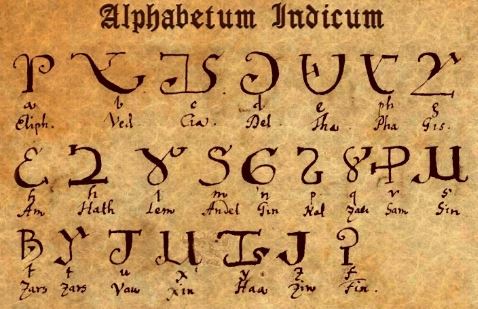 Alphabetum Indicum
a b c d e ph g
Eliph. Ved. Cia. Del. Tha. Pha Gis.
h h l m n p q r s
Am Hath Lem Andel Gin Kal Zadi Sam Sin
t t u x y z f
Zars Zars Vau Xin Haa Zin Fin.